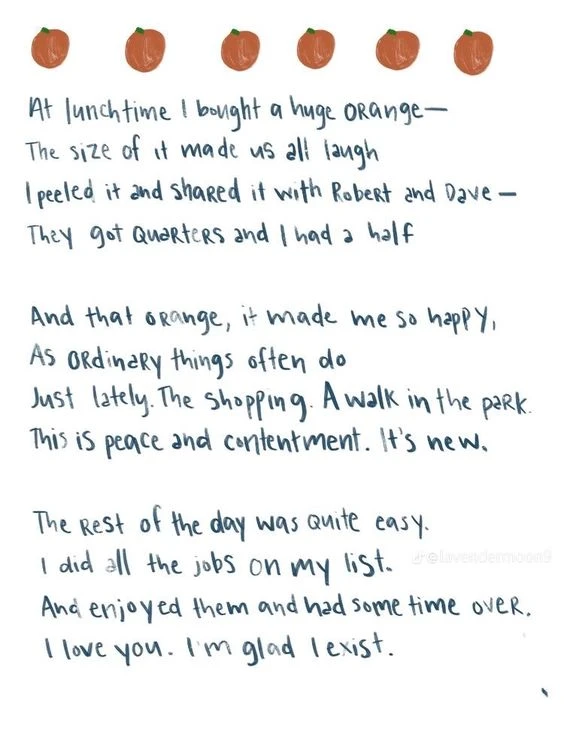 At lunchtime I bought a huge orange—
The size of it made us all laugh
I peeled it and shared it with Robert and Dave—
They got quarters and I had a half
And that orange, it made me so happy,
As ordinary things often do
Just lately. The shopping. A walk in the park.
This is peace and contentment. It's new.
The rest of the day was quite easy.
I did all the jobs on my list.
@lavendermoon9
And enjoyed them and had some time over.
I love you. I'm glad I exist.